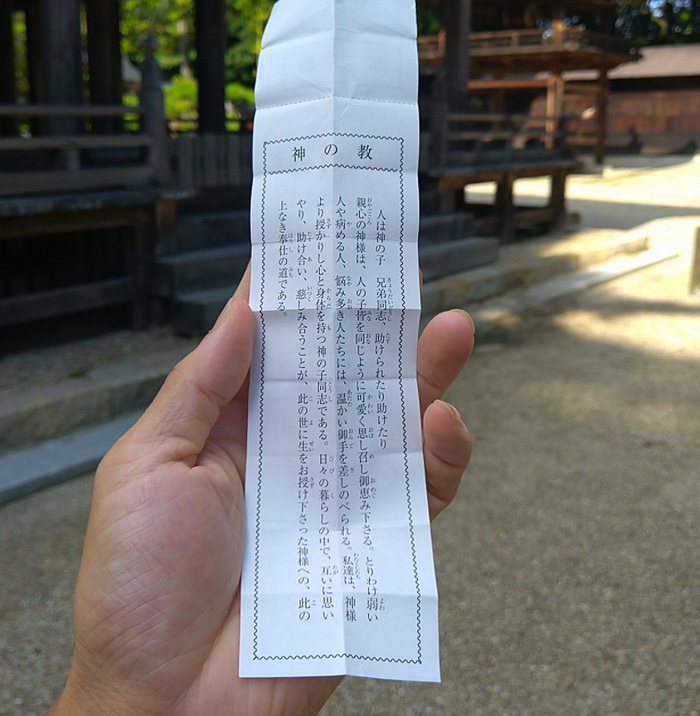 神の教
人は神の子 兄弟同志、助けられたり助けたり
親心の神様は、人の子皆を同じように可愛く思し召し御恵み下さる。とりわけ弱い
人や病める人、悩み多き人たちには、温かい御手を差しのべられる。私達は、神様
より授かりし心と身体を持つ神の子同志である。日々の暮らしの中で、互いに思い
やり、助け合い、慈しみ合うことが、此の世に生をお授け下さった神様への、此の
上なき奉仕の道である。